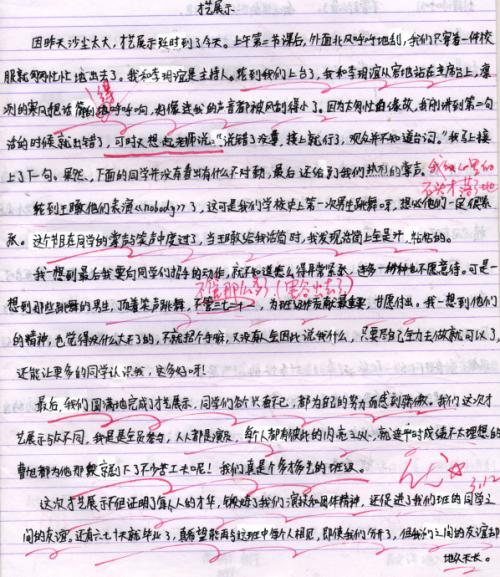 才艺展示
因昨天沙尘太大,才艺展示延时到了今天。上午第二节课后,外面北风呼呼地刮,我们只穿着一件校
服就匆匆忙忙地出去了。我和李玥谊是主持人。轮到我们上台了,我和李玥谊从容地站在主席台上,凛
冽的寒风把话筒刮得呼呼响,好像连我的声音都被风刮得小了。因为太匆忙的缘故,我刚讲到第二句
话的时候就出错了,可时,想起老师说:“说错了没事,接上就行了,观众并不知道台词。”我马上接
上了下一句。果然,下面的同学并没有看出有什么不对劲,最后还给了我们热烈的掌声。
轮到王璇他们表演《nobody》了,这可是我们学校史上第一次男生跳舞呀,想必他们一定很紧
张。这个节目在同学的掌声与笑声中度过了,当王璇给我话筒时,我发现话筒上全是汗,粘粘的。
我一想到最后我要向同学们招手的动作,就不知道怎么得异常紧张,连多一秒钟也不愿意待。可是一
想到那些跳舞的男生,顶着笑声跳舞,不管三七二十一,为班级贡献最重要,甘愿付出。我一想到他们
的精神,也觉得没什么大不了的,不就招个手嘛,又没有人会因此说我什么,只要尽自己全力去做就可以了,
还能让更多的同学认识我,实多好呀!
最后,我们圆满地完成了才艺展示,同学们各个兴奋不已,都为自己的努力而感到骄傲。我们这次才
艺展示与众不同,我是是全员参与,人人都是演员,每个人都有彼此的闪亮之处,就连平时成绩不太理想的
曹旭都为他那飘京剧下了不少苦工夫呢!我们真是个多才多艺的班级。
3.12
这次才艺展示不但证明了每人的才华,锻炼了我们演技和团体精神,还促进了我们班的同学之
间的友谊。还有六七十天就毕业了,真希望能再与这班中每个人相见,即使我们分开了,但我们之间的友谊却
地久天长。